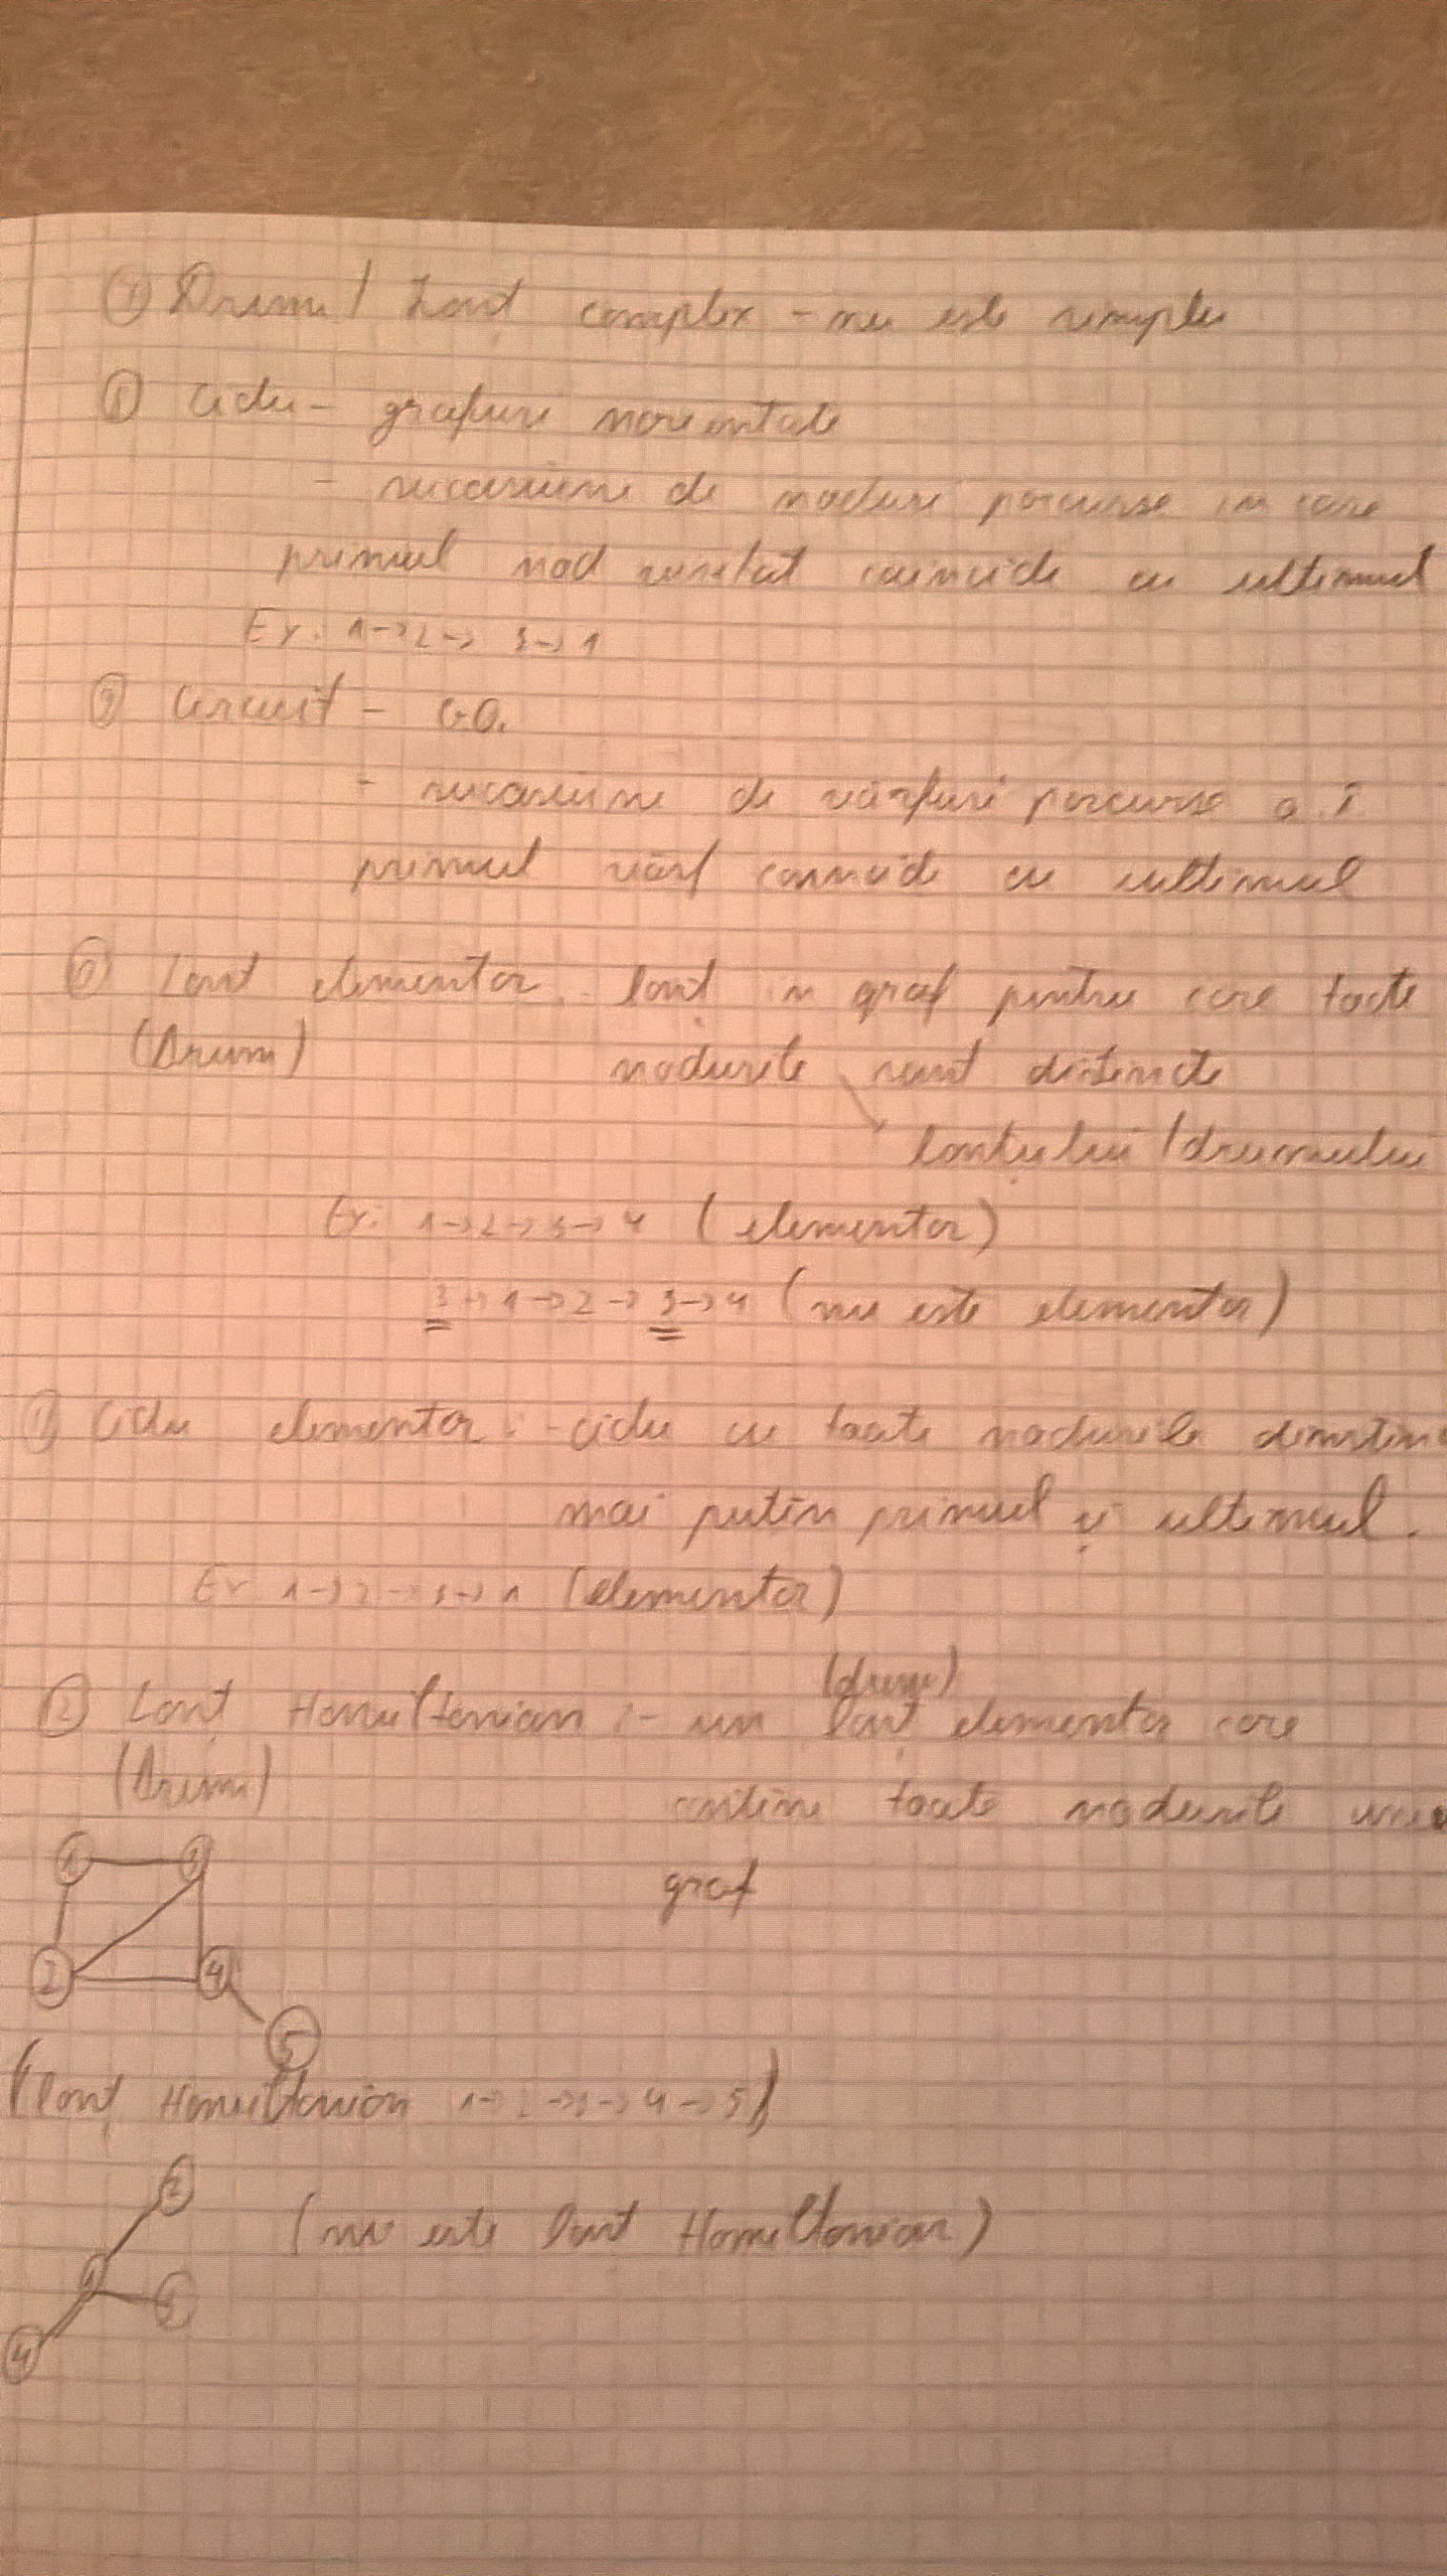 ⑦ Drum / Lanț complex - nu este simplu
⑧ Ciclu - grafuri neorientate
- succesiune de noduri parcurse in care
primul nod vizitat coincide cu ultimul
Ex: 1→2→3→1
⑨ Circuit - G.O.
- succesiune de vârfuri parcurse a.î.
primul vârf coincide cu ultimul
Lanț elementar - lanț in graf pentru care toate
(Drum) nodurile sunt distincte
lanțului / drumului
Ex: 1→2→3→4 (elementar)
3→1→2→3→4 (nu este elementar)
Ciclu elementar: - ciclu cu toate nodurile
mai putin primul și ultimul.
Ex 1→2→3→1 (elementar)
(drum)
② Lanț Hamiltonian: - un lanț elementar care
(Drum) contine toate nodurile unui
graf
1 3
2 4
5
(lanț Hamiltonian 1→2→3→4→5)
2
(nu este lanț Hamiltonian)
1 3
4